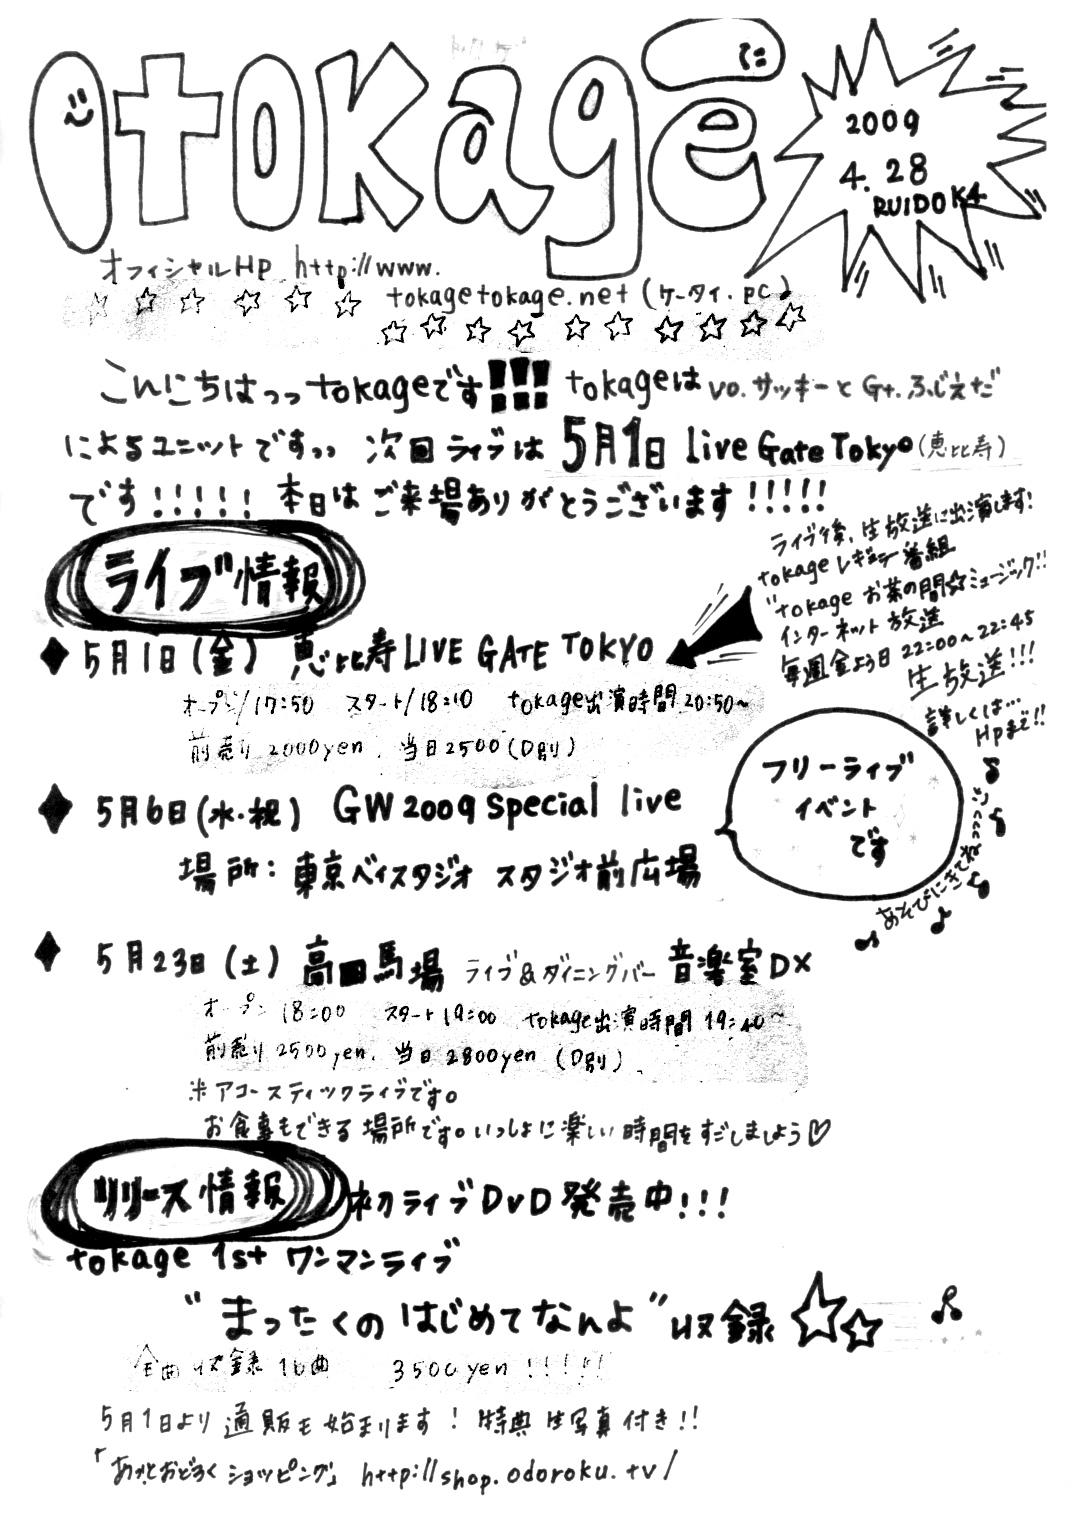 tokage
2009
4.28
RUIDO K4
オフィシャルHP http://www.
tokagetokage.net (ケータイ・pc)
こんにちはっっ tokageです!!! tokageは vo. サッキーと Gt. ふじえだ
によるユニットですっっ 次回ライブは 5月1日 live Gate Tokyo (恵比寿)
です!!!!! 本日はご来場ありがとうございます!!!!!
ライブ情報
ライブ後、生放送に出演します!
tokage レギュラー番組
"tokage お茶の間☆ミュージック"!!
インターネット放送
毎週金よう日 22:00~22:45
生放送!!!
詳しくは…
HPまで!!
◆5月1日(金) 恵比寿 LIVE GATE TOKYO
オープン/17:50 スタート/18:10 tokage出演時間 20:50~
前売り 2000yen. 当日2500 (D別)
◆5月6日(水・祝) GW2009 special live
場所:東京ベイスタジオ スタジオ前広場
フリーライブ
イベント
です
あそびにきてね
◆5月23日(土) 高田馬場 ライブ&ダイニングバー 音楽室DX
オープン 18:00 スタート 19:00 tokage出演時間 19:40~
前売り 2500yen. 当日 2800yen (D別)
※アコースティックライブです。
お食事もできる場所です。いっしょに楽しい時間をすごしましょう♡
リリース情報 初ライブDVD発売中!!!
tokage 1st ワンマンライブ
"まったくのはじめてなんよ" 収録 ☆☆
全曲収録 16曲 3500yen !!!!!
5月1日より通販も始まります! 特典生写真付き!!
「あっとおどろくショッピング」 http://shop.odoroku.tv/